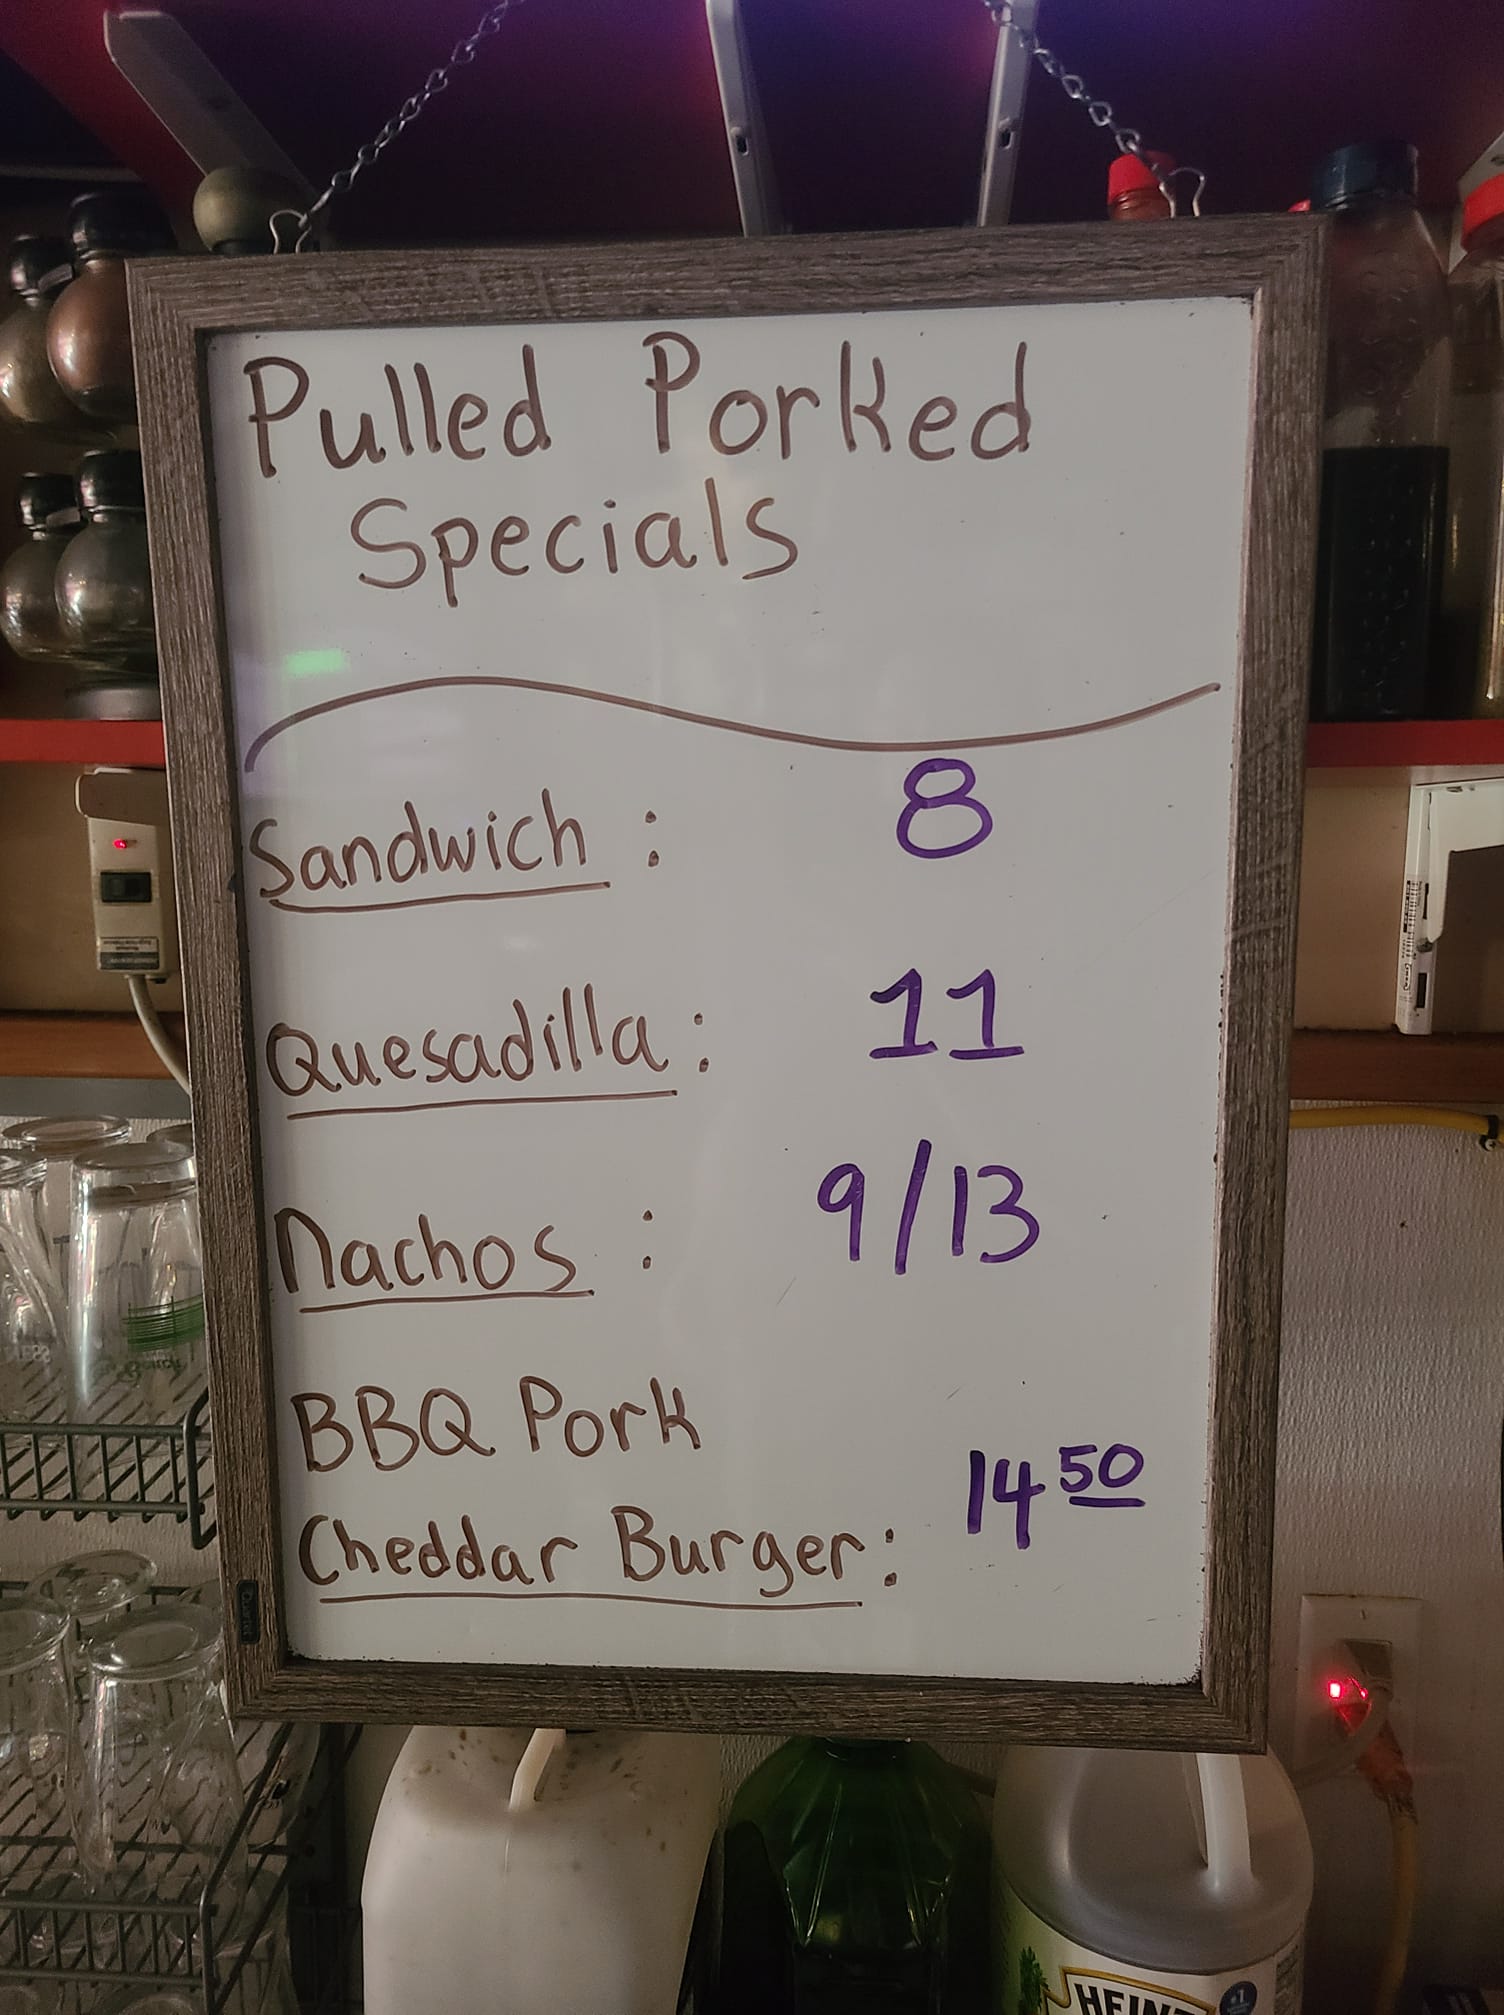 Pulled Porked
Specials
Sandwich : 8
Quesadilla : 11
Nachos : 9/13
BBQ Pork
Cheddar Burger: 14 50
Quartet
HEINZ